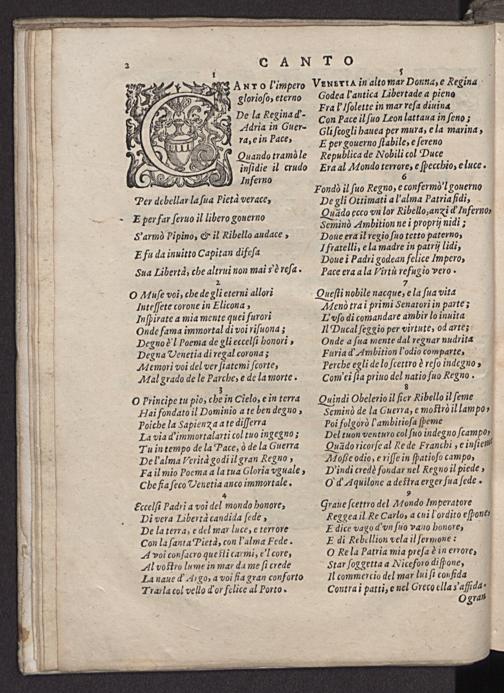 2
CANTO
1
CANTO l'impero
glorioso, eterno
De la Regina d'-
Adria in Guer-
ra, e in Pace,
Quando tramò le
insidie il crudo
Inferno
Per debellar la sua Pietà verace,
E per far seruo il libero gouerno
S'armò Pipino, & il Ribello audace,
E fu da inuitto Capitan difesa
Sua Libertà, che altrui non mai s'è resa.
2
O Muse voi, che de gli eterni allori
Intessete corone in Elicona,
Inspirate a mia mente quei furori
Onde fama immortal di voi risuona;
Degno è'l Poema de gli eccelsi honori,
Degna Venetia di regal corona;
Memori voi del ver siatemi scorte,
Mal grado de le Parche, e de la morte.
3
O Principe tu pio, che in Cielo, e in terra
Hai fondato il Dominio a te ben degno,
Poiche la Sapienza a te disserra
La via d'immortalarti col tuo ingegno;
Tu in tempo de la Pace, ò de la Guerra
De l'alma Verità godi il gran Regno,
Fa il mio Poema a la tua Gloria vguale,
Che sia seco Venetia anco immortale.
4
Eccelsi Padri a voi del mondo honore,
Di vera Libertà candida sede,
De la terra, e del mar luce, e terrore
Con la santa Pietà, con l'alma Fede.
A voi consacro questi carmi, e'l core,
Al vostro lume in mar da me si crede
La naue d'Argo, a voi sia gran conforto
Trarla col vello d'or felice al Porto.
5
VENETIA in alto mar Donna, e Regina
Godea l'antica Libertade a pieno
Fra l'Isolette in mar resa diuina
Con Pace il suo Leon lattaua in seno;
Gli scogli hauea per mura, e la marina,
E per gouerno stabile, e sereno
Republica de Nobili col Duce
Era al Mondo terrore, e specchio, e luce.
6
Fondò il suo Regno, e confermò'l gouerno
De gli Ottimati a l'alma Patria fidi,
Quãdo ecco vn lor Ribello, anzi d'Inferno,
Seminò Ambition ne i proprij nidi;
Doue era il regio suo tetto paterno,
I fratelli, e la madre in patrij lidi,
Doue i Padri godean felice Impero,
Pace era a la Virtù refugio vero.
7
Questi nobile nacque, e la sua vita
Menò tra i primi Senatori in parte;
L'vso di comandare ambir lo inuita
Il Ducal seggio per virtute, od arte;
Onde a sua mente dal regnar nudrita
Furia d'Ambition l'odio comparte,
Perche egli de lo scettro è reso indegno,
Com'ei sia priuo del natio suo Regno.
8
Quindi Obelerio il fier Ribello il seme
Seminò de la Guerra, e mostrò il lampo,
Poi folgorò l'ambitiosa speme
Del tuon venturo col suo indegno scampo,
Quãdo ricorse al Re de Franchi, e insieme
Mosse odio, e risse in spatioso campo,
D'indi credè fondar nel Regno il piede,
O d'Aquilone a destra erger sua sede.
9
Graue scettro del Mondo Imperatore
Reggea il Re Carlo, a cui l'ordito espone
E dice vago d'vn suo vano honore,
E di Rebellion vela il sermone:
O Re la Patria mia presa è in errore,
Star soggetta a Niceforo dispone,
Il commercio del mar lui si confida
Contra i patti, e nel Greco ella s'affida.
O gran